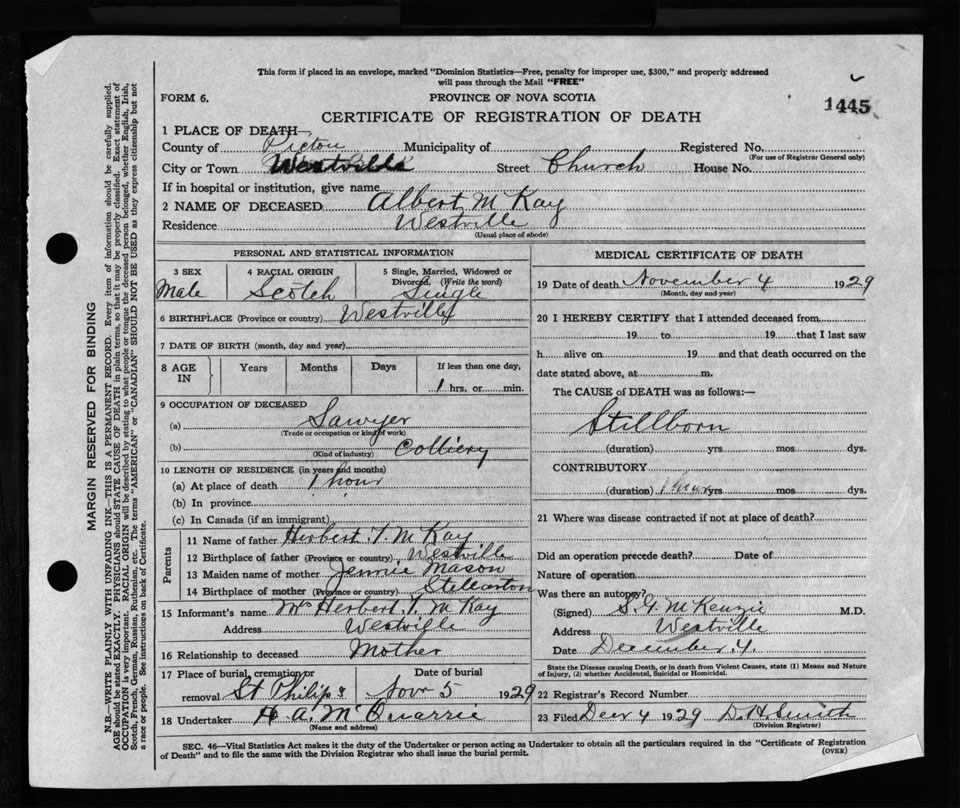 This form if placed in an envelope, marked "Dominion Statistics—Free, penalty for improper use, $300," and properly addressed
will pass through the Mail "FREE"
FORM 6.
PROVINCE OF NOVA SCOTIA
1445
CERTIFICATE OF REGISTRATION OF DEATH
1 PLACE OF DEATH—
County of Pictou Municipality of Registered No.
(For use of Registrar General only)
City or Town Westville Street Church House No.
If in hospital or institution, give name
2 NAME OF DECEASED Albert McKay
Residence Westville
(Usual place of abode)
PERSONAL AND STATISTICAL INFORMATION
3 SEX 4 RACIAL ORIGIN 5 Single, Married, Widowed or
Divorced. (Write the word)
Male Scotch Single
6 BIRTHPLACE (Province or country) Westville
7 DATE OF BIRTH (month, day and year)
8 AGE IN Years Months Days If less than one day,
1 hrs. or min.
9 OCCUPATION OF DECEASED
(a) Sawyer
(Trade or occupation or kind of work)
(b) Colliery
(Kind of industry)
10 LENGTH OF RESIDENCE (in years and months)
(a) At place of death 1 hour
(b) In province
(c) In Canada (if an immigrant)
Parents
11 Name of father Herbert T. McKay
12 Birthplace of father (Province or country) Westville
13 Maiden name of mother Jennie Mason
14 Birthplace of mother (Province or country) Stellarton
15 Informant's name Mrs Herbert T. McKay
Address Westville
16 Relationship to deceased Mother
17 Place of burial, cremation or removal Date of burial
St Philips Nov 5 1929
18 Undertaker H. A. McQuarrie
(Name and address)
MEDICAL CERTIFICATE OF DEATH
19 Date of death November 4 1929
(Month, day and year)
20 I HEREBY CERTIFY that I attended deceased from
19 to 19 that I last saw
h alive on 19 and that death occurred on the
date stated above, at m.
The CAUSE of DEATH was as follows:—
Stillborn
(duration) yrs. mos. dys.
CONTRIBUTORY
(duration) 1 hour yrs. mos. dys.
21 Where was disease contracted if not at place of death?
Did an operation precede death? Date of
Nature of operation
Was there an autopsy?
(Signed) S. G. McKenzie M.D.
Address Westville
Date December 4.
State the Disease causing Death, or in death from Violent Causes, state (1) Means and Nature
of Injury, (2) whether Accidental, Suicidal or Homicidal.
22 Registrar's Record Number
23 Filed Decr 4 1929 D. H. Smith
(Division Registrar)
SEC. 46—Vital Statistics Act makes it the duty of the Undertaker or person acting as Undertaker to obtain all the particulars required in the "Certificate of Registration
of Death" and to file the same with the Division Registrar who shall issue the burial permit.
(OVER)
MARGIN RESERVED FOR BINDING
N.B.—WRITE PLAINLY WITH UNFADING INK—THIS IS A PERMANENT RECORD. Every item of information should be carefully supplied.
AGE should be stated EXACTLY. PHYSICIANS should STATE CAUSE OF DEATH in plain terms, so that it may be properly classified. Exact statement of
OCCUPATION is very important. RACIAL ORIGIN will be described by stating to what people or tongue the deceased person belonged, whether English, Irish,
Scotch, French, German, Russian, Ruthenian, etc. The terms "AMERICAN" or "CANADIAN" SHOULD NOT BE USED as they express citizenship but not
a race or people. See instructions on back of Certificate.